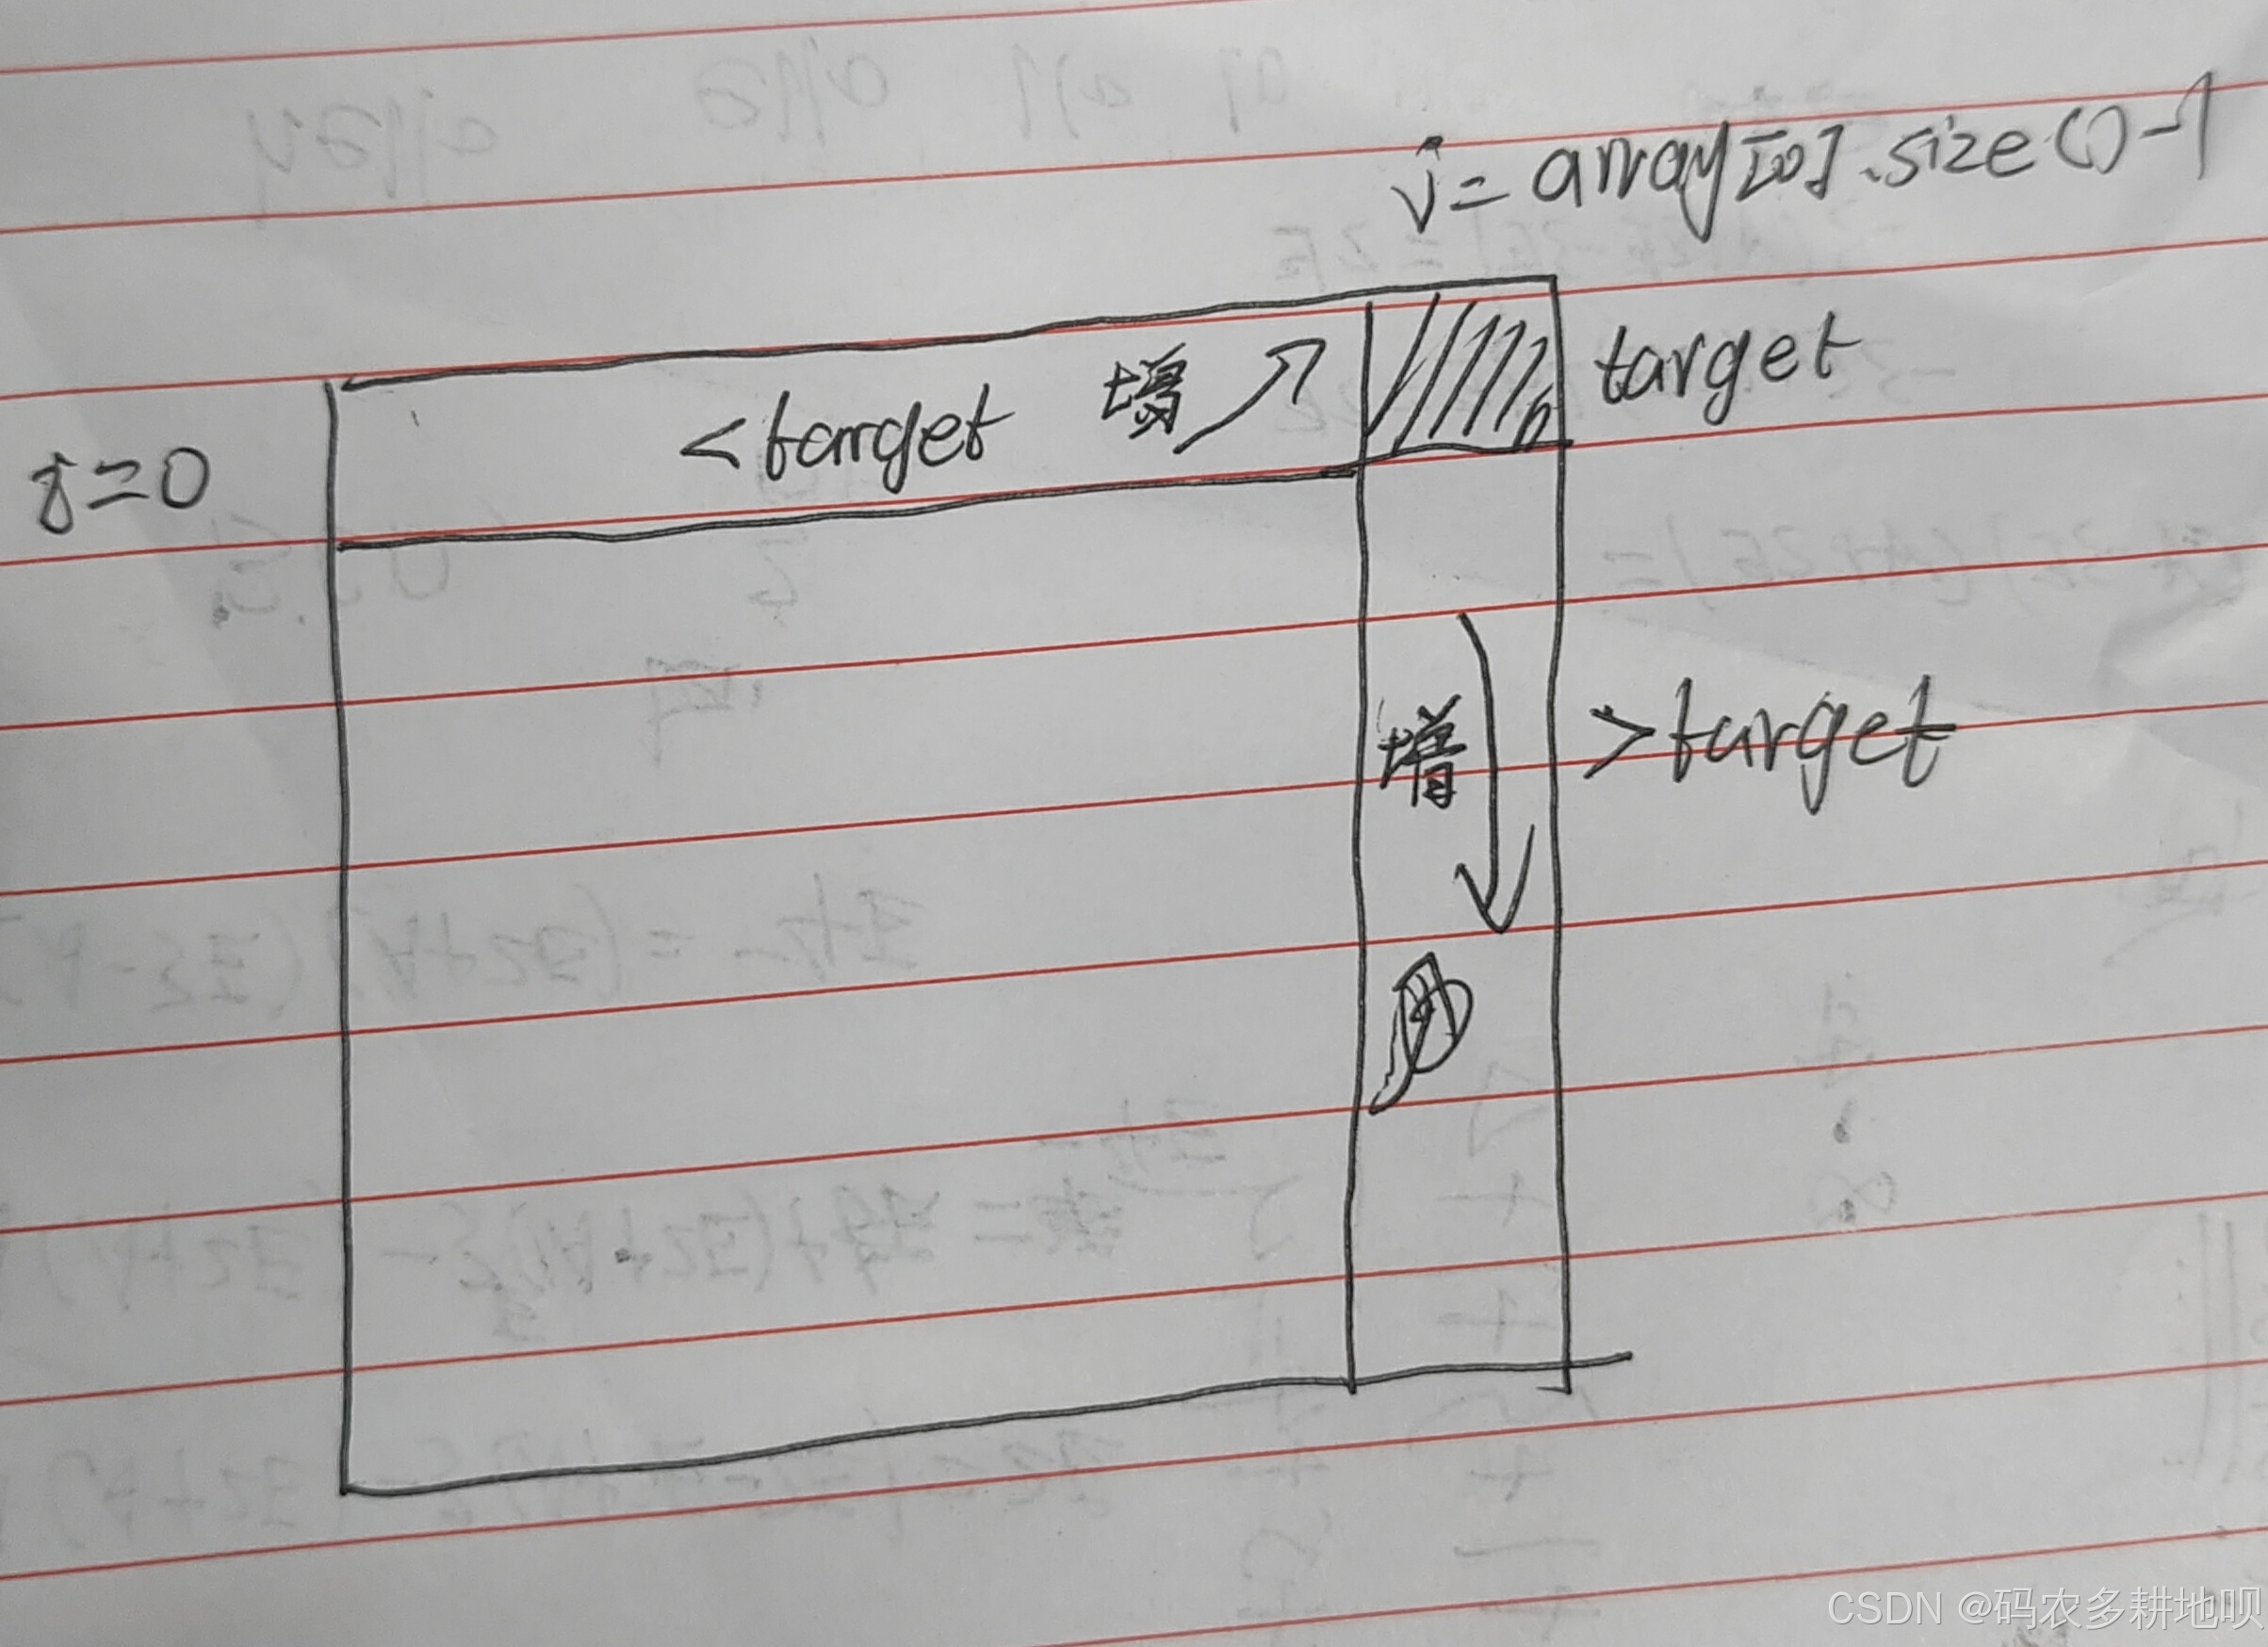 j=array[0].size()-1
<target 增
target
i=0
增
>target
CSDN @码农多耕地呗